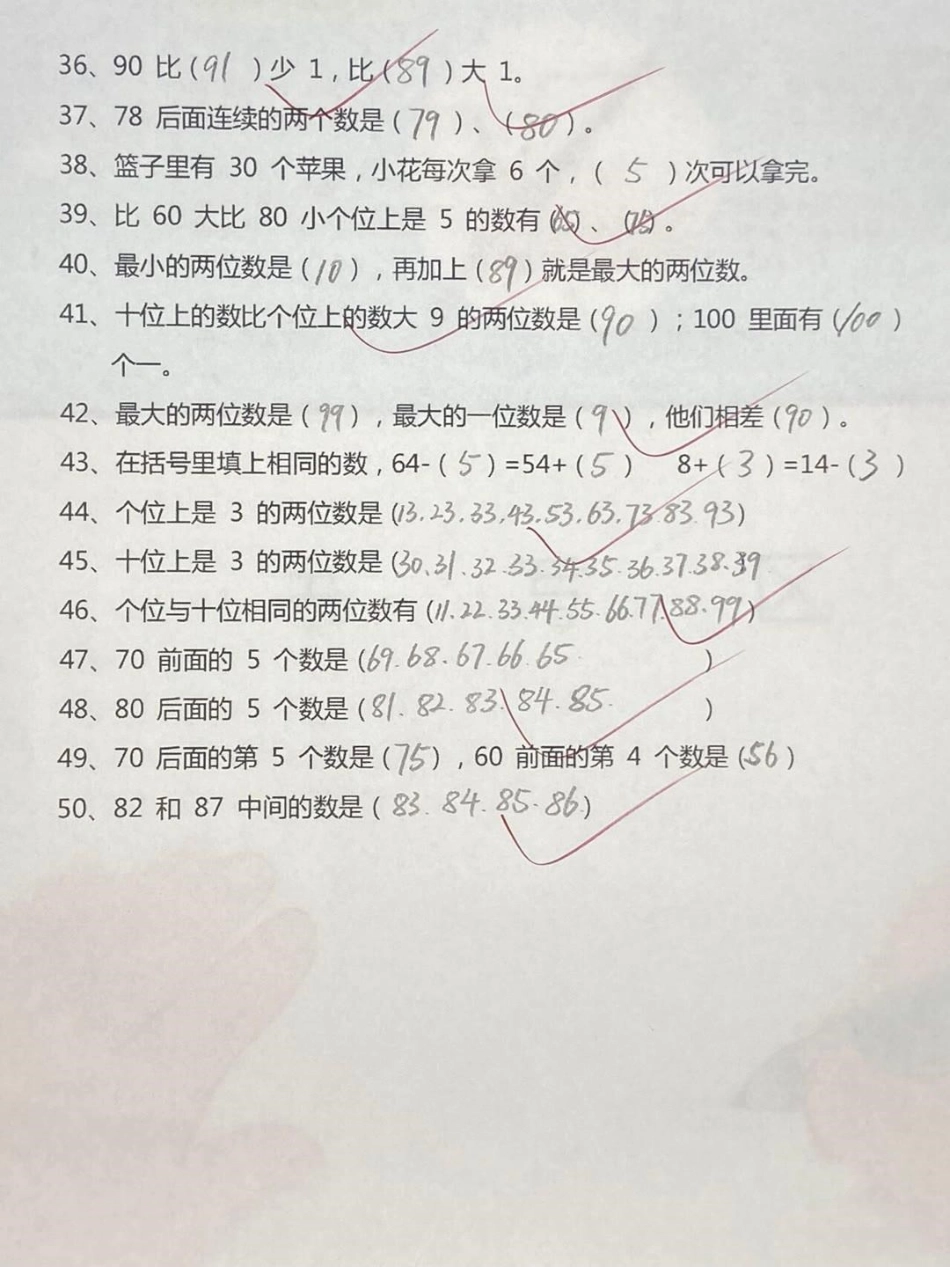 36、90 比(91)少 1,比(89)大 1。
37、78 后面连续的两个数是(79)、(80)。
38、篮子里有 30 个苹果,小花每次拿 6 个,(5)次可以拿完。
39、比 60 大比 80 小个位上是 5 的数有(65)、(75)。
40、最小的两位数是(10),再加上(89)就是最大的两位数。
41、十位上的数比个位上的数大 9 的两位数是(90);100 里面有(100)
个一。
42、最大的两位数是(99),最大的一位数是(9),他们相差(90)。
43、在括号里填上相同的数,64-(5)=54+(5) 8+(3)=14-(3)
44、个位上是 3 的两位数是(13.23.33.43.53.63.73.83.93)
45、十位上是 3 的两位数是(30.31.32.33.34.35.36.37.38.39
46、个位与十位相同的两位数有(11.22.33.44.55.66.77.88.99)
47、70 前面的 5 个数是(69.68.67.66.65)
48、80 后面的 5 个数是(81.82.83.84.85.)
49、70 后面的第 5 个数是(75),60 前面的第 4 个数是(56)
50、82 和 87 中间的数是(83.84.85.86.)